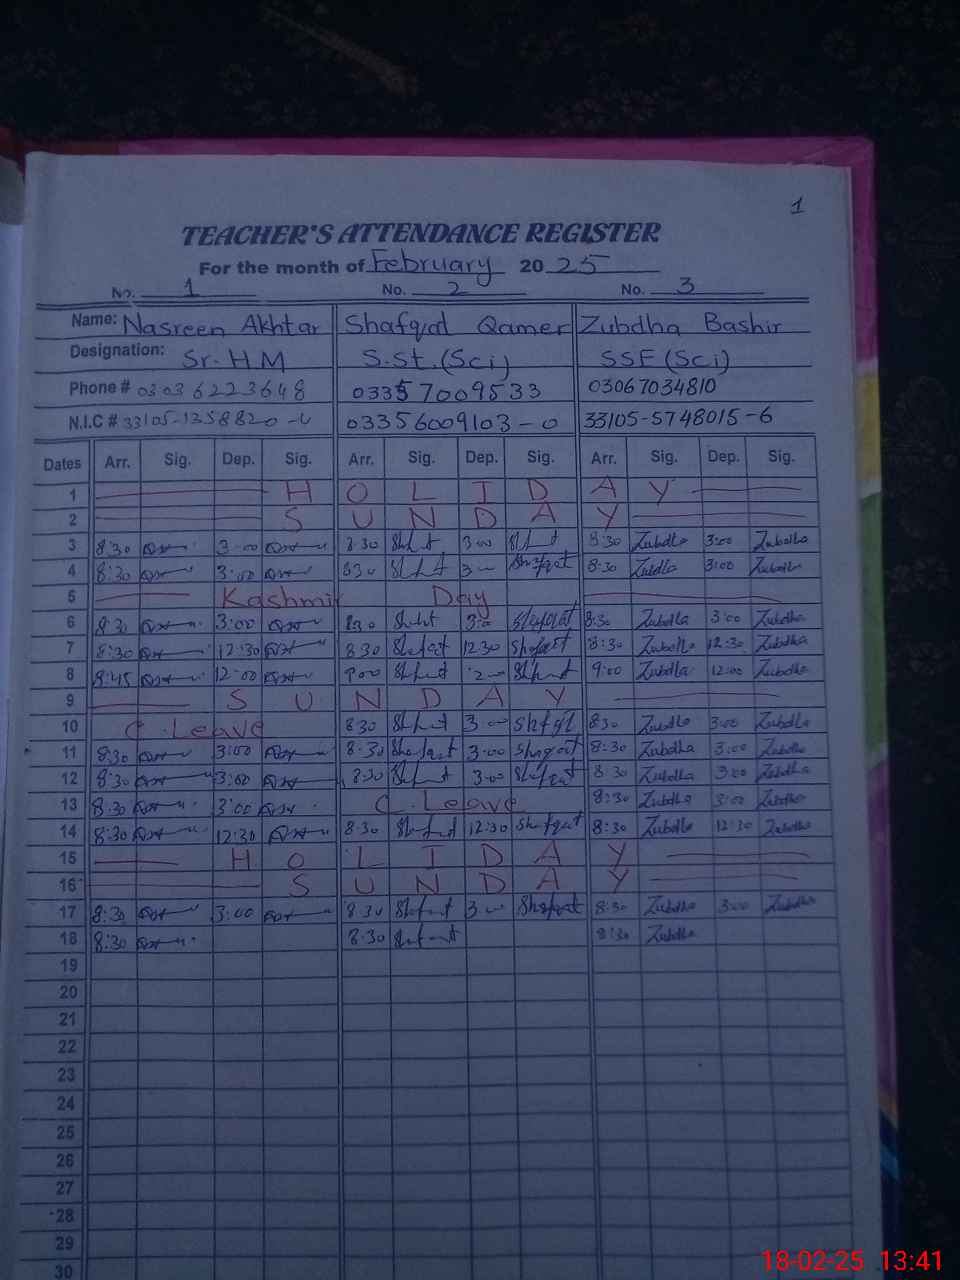 1
TEACHER'S ATTENDANCE REGISTER
For the month of February 2025
No. 1 No. 2 No. 3
Name: Nasreen Akhtar Shafqat Qamer Zubdha Bashir
Designation: Sr. H.M S.St.(Sci) SSE (Sci)
Phone # 03036223648 03357009533 03067034810
N.I.C # 33105-1358820-4 03356009103-0 33105-5748015-6
Dates Arr. Sig. Dep. Sig. Arr. Sig. Dep. Sig. Arr. Sig. Dep. Sig.
1 HOLIDAY
2 SUNDAY
3 8:30 3:00 8:30 3:00 8:30 Zubdha 3:00 Zubdha
4 8:30 3:00 830 3 Shafqat 8:30 Zubdha 3:00 Zubdha
5 Kashmir Day
6 8:30 3:00 830 3:00 Shafqat 8:30 Zubdha 3:00 Zubdha
7 8:30 12:30 830 Shafqat 12:30 Shafqat 8:30 Zubdha 12:30 Zubdha
8 8:45 12:00 9:00 9:00 Zubdha 12:00 Zubdha
9 SUNDAY
10 C. Leave 830 3:00 830 Zubdha 3:00 Zubdha
11 8:30 3:00 8:30 Shafqat 3:00 Shafqat 8:30 Zubdha 3:00 Zubdha
12 8:30 3:00 8:30 3:00 Shafqat 8:30 Zubdha 3:00 Zubdha
13 8:30 3:00 C. Leave 8:30 Zubdha 3:00 Zubdha
14 8:30 12:30 8:30 12:30 Shafqat 8:30 Zubdha 12:30 Zubdha
15 HOLIDAY
16 SUNDAY
17 8:30 3:00 8:30 Shafqat 3 Shafqat 8:30 Zubdha 3:00 Zubdha
18 8:30 8:30 Shafqat 8:30 Zubdha
19
20
21
22
23
24
25
26
27
28
29
30
18-02-25 13:41